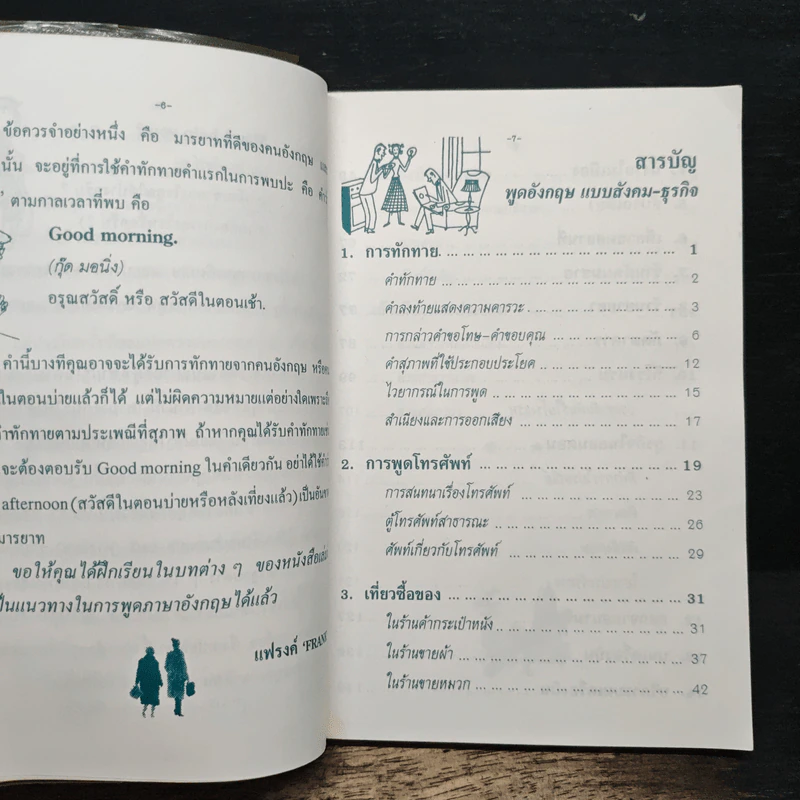 -6-
ข้อควรจำอย่างหนึ่ง คือ มารยาทที่ดีของคนอังกฤษ
นั้น จะอยู่ที่การใช้คำทักทายคำแรกในการพบปะ คือ
ตามกาลเวลาที่พบ คือ
Good morning.
(กุ๊ด มอนิ่ง)
อรุณสวัสดิ์ หรือ สวัสดีในตอนเช้า.
คำนี้บางทีคุณอาจจะได้รับการทักทายจากคนอังกฤษ
ในตอนบ่ายแล้วก็ได้ แต่ไม่ผิดความหมายแต่อย่างใดเพราะ
คำทักทายตามประเพณีที่สุภาพ ถ้าหากคุณได้รับคำทักทาย
จะต้องตอบรับ Good morning ในคำเดียวกัน อย่าได้ใช้
afternoon (สวัสดีในตอนบ่ายหรือหลังเที่ยงแล้ว) เป็นอัน
มารยาท
ขอให้คุณได้ฝึกเรียนในบทต่าง ๆ ของหนังสือ
เป็นแนวทางในการพูดภาษาอังกฤษได้แล้ว
แฟรงค์
-7-
สารบัญ
พูดอังกฤษ แบบสังคม-ธุรกิจ
1. การทักทาย. ... ... ... ... ... ... ... ... ... ... ... 1
คำทักทาย ... ... ... ... ... ... ... ... ... ... ... 2
คำลงท้ายแสดงความคารวะ . ... ... ... ... ... ... 3
การกล่าวคำขอโทษ-คำขอบคุณ ... ... ... ... ... 6
คำสุภาพที่ใช้ประกอบประโยค ... ... ... ... ... ... 12
ไวยากรณ์ในการพูด ... ... ... ... ... ... ... ... 15
สำเนียงและการออกเสียง ... ... ... ... ... ... ... 17
2. การพูดโทรศัพท์ ... ... ... ... ... ... ... ... ... 19
การสนทนาเรื่องโทรศัพท์ ... ... ... ... ... ... ... 23
ตู้โทรศัพท์สาธารณะ ... ... ... ... ... ... ... ... 26
ศัพท์เกี่ยวกับโทรศัพท์ ... ... ... ... ... ... ... ... 29
3. เที่ยวซื้อของ ... ... ... ... ... ... ... ... ... ... 31
ในร้านค้ากระเป๋าหนัง ... ... ... ... ... ... ... ... 31
ในร้านขายผ้า ... ... ... ... ... ... ... ... ... ... 37
ในร้านขายหมวก ... ... ... ... ... ... ... ... ... 42